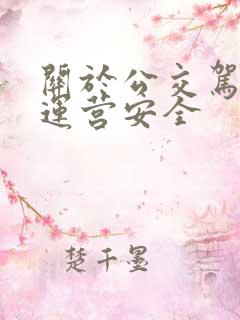 關於公交駕
運营安全
楚千墨